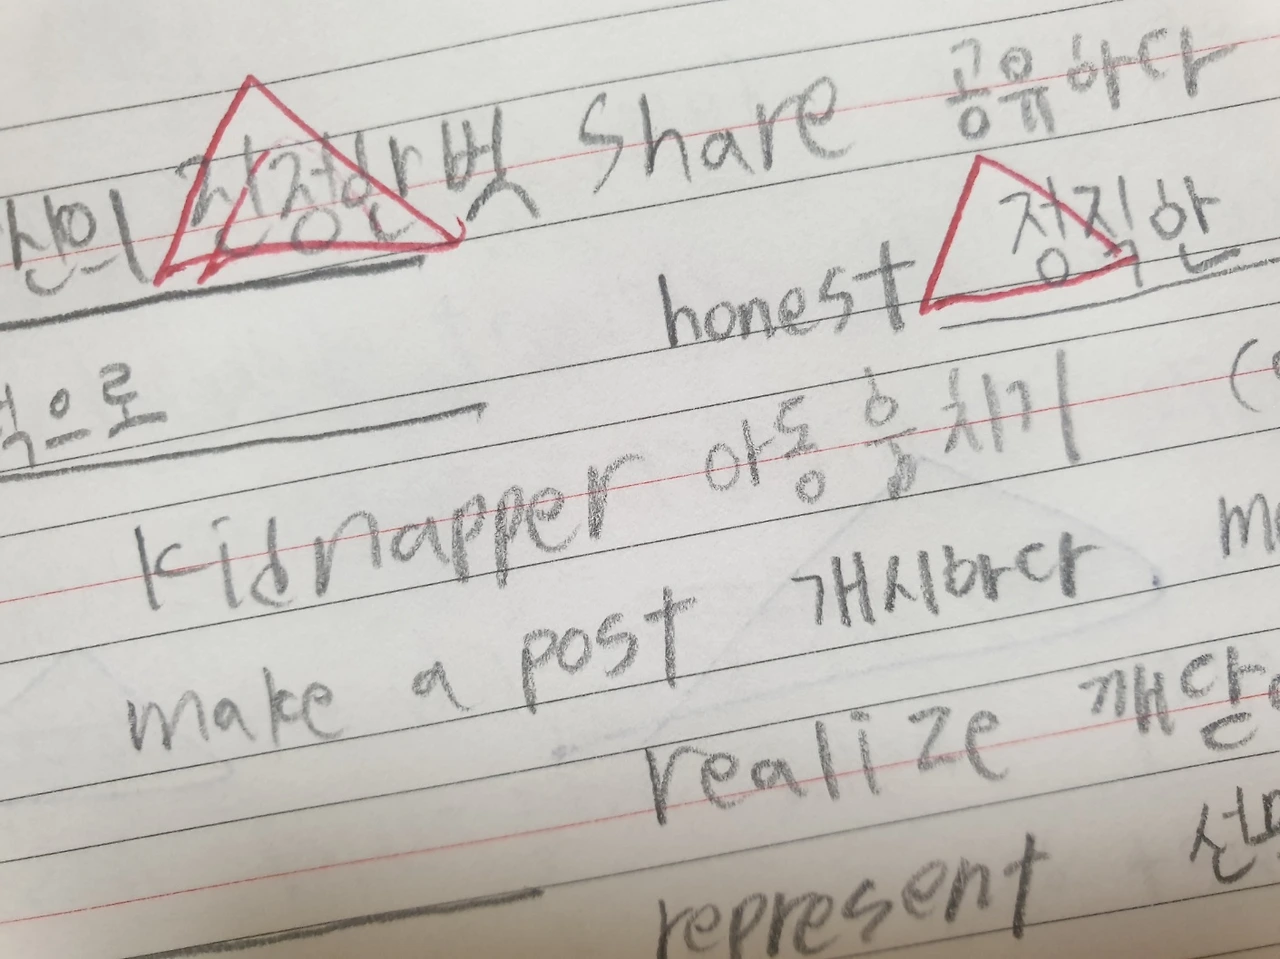 진정한 벗 share 공유하다
honest 정직한
으로
kidnapper 아동 훔치기
make a post 개시하다
realize 깨달
represent